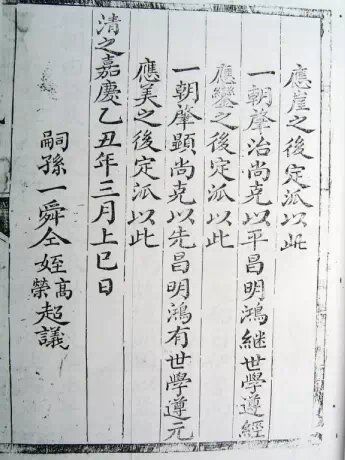 應崖之後定派以此
一朝肇治尚克以平昌明鴻繼世學遵經
應鑾之後定派以此
一朝肇顯尚克以先昌明鴻有世學遵元
應美之後定派以此
清之嘉慶乙丑年三月上巳日
嗣孫一舜仝姪高榮超議